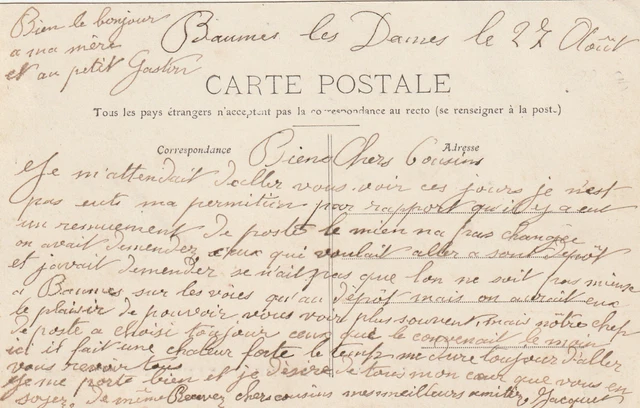 Bien le bonjour
a ma mère
et au petit Gaston
Baumes les Dames le 27 Août
CARTE POSTALE
Tous les pays étrangers n'acceptent pas la correspondance au recto (se renseigner à la poste)
Correspondance
Adresse
Biens Chers Cousins
Je m'attendait d'aller vous voir ces jours je n'est
pas euts ma permition par rapport qu'il y a eut
un remuement de poste le mien na pas changée
on avait demender ceux qui voulait aller a sont dépôt
et javait demender se n'ait pas que lon ne soit pas mieux
a Baumes sur les vôies qu'au dépôt mais on aurait eux
le plaisir de pouvoir vous voir plus souvent mais nôtre chef
de poste a choisi toujour ceux que le convenait le main
ici il fait une chaleur forte le temp me dure toujour d'aller
vous revoir tous
Je me porte bien et je désire de tous mon cœur que vous en
soyez de même Recevez chers cousins mes meilleurs amitier Jacquet